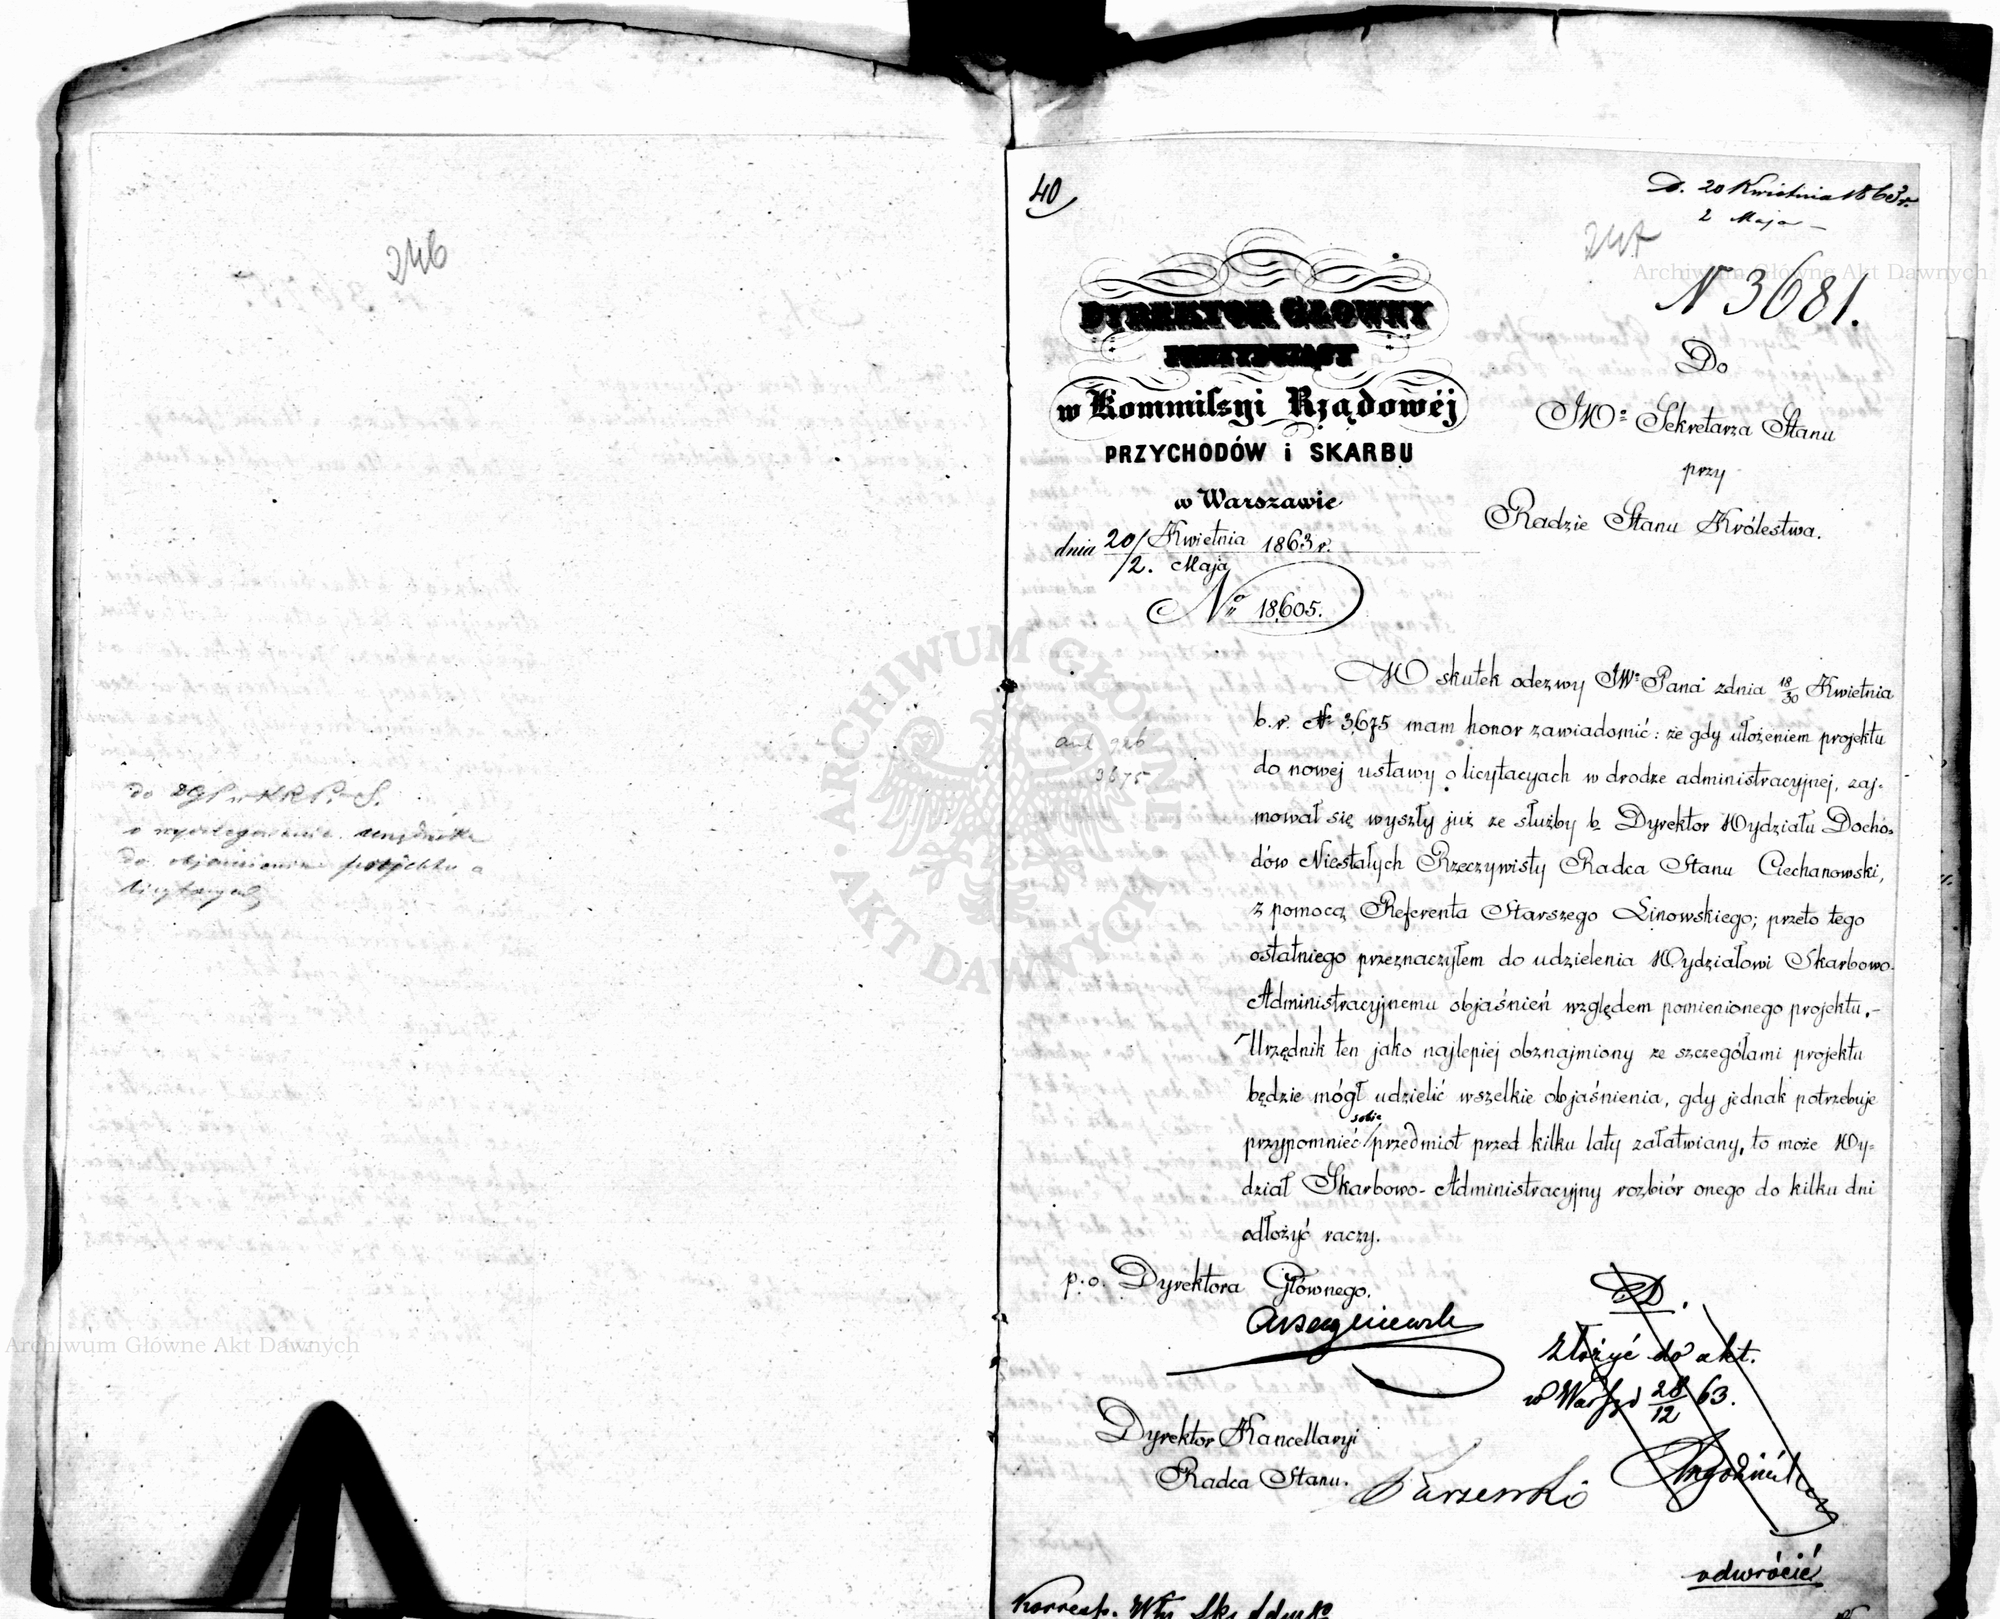 246
do DGP w KRP i S.
o wydelegowanie urzędnika
do objaśnienia projektu o
licytacyach
40
d. 20 Kwietnia 1863 r.
2 Maja
247
N 3681.
DYREKTOR GŁÓWNY
PREZYDUJĄCY
w Kommissyi Rządowéj
PRZYCHODÓW i SKARBU
w Warszawie
dnia 20/2. Kwietnia/Maja 1863 r.
No 18,605.
Do
JW. Sekretarza Stanu
przy
Radzie Stanu Królestwa.
3675
W skutek odezwy JW. Pana z dnia 18/30 Kwietnia
b. r. N 3,675 mam honor zawiadomić: że gdy ułożeniem projektu
do nowej ustawy o licytacyach w drodze administracyjnej, zaj-
mował się wyszły już ze służby b. Dyrektor Wydziału Docho-
dów Niestałych Rzeczywisty Radca Stanu Ciechanowski,
z pomocą Referenta Starszego Linowskiego; przeto tego
ostatniego przeznaczyłem do udzielenia Wydziałowi Skarbowo-
Administracyjnemu objaśnień względem pomienionego projektu.-
Urzędnik ten jako najlepiej obznajmiony ze szczegółami projektu
będzie mógł udzielić wszelkie objaśnienia, gdy jednak potrzebuje
przypomnieć sobie przedmiot przed kilku laty załatwiany, to może Wy-
dział Skarbowo-Administracyjny rozbiór onego do kilku dni
odłożyć raczy.
p.o. Dyrektora Głównego.
Dyrektor Kancellaryi
Radca Stanu.
D.
Złożyć do akt.
w Warsz d 28/12 63.
odwrócić
Korresp.
Archiwum Główne Akt Dawnych
ARCHIWUM GŁÓWNE AKT DAWNYCH
Archiwum Główne Akt Dawnych